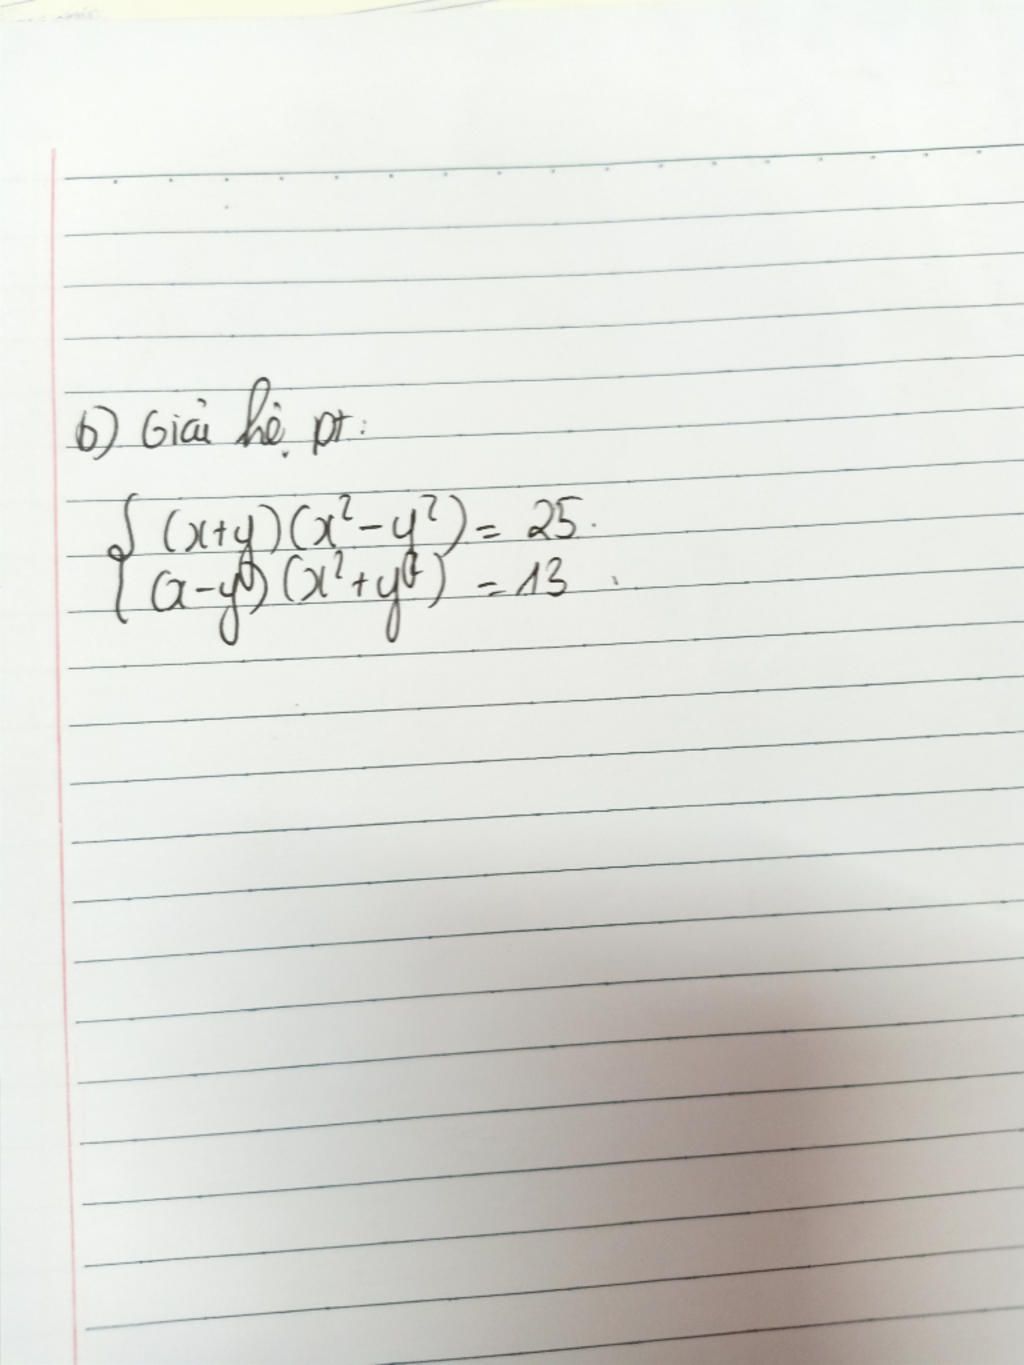 b) Giải hệ pt:
{ (x+y)(x²-y²) = 25.
(x-y)(x²+y²) = 13